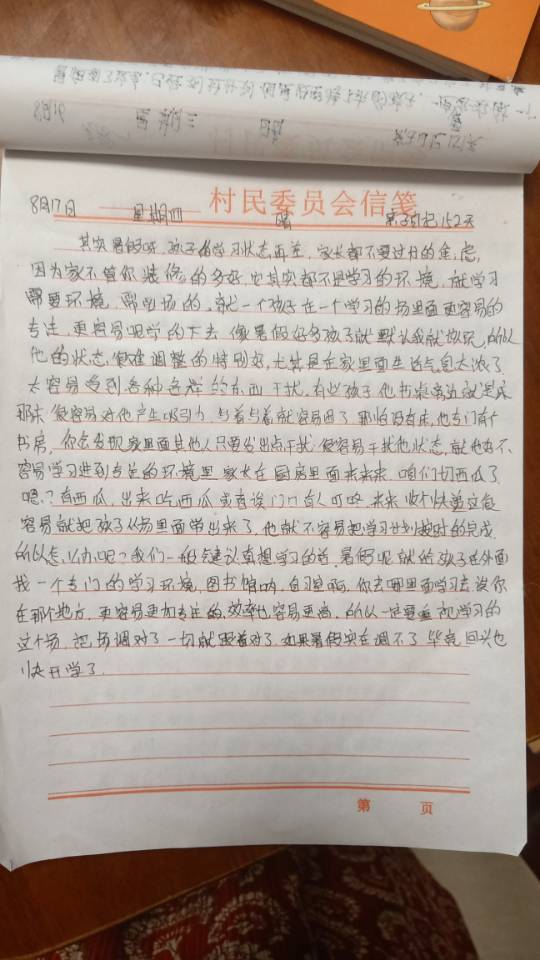 8月17日 星期四 晴 152天
村民委员会信笺
其实暑假呀,孩子的学习状态再差,家长都不要过分的焦虑,
因为家不管你装修的多好,它其实都不是学习的环境,就学习
需要环境,需要场的,就一个孩子在一个学习的场里面更容易的
专注,更容易呢学的下去,像暑假好多孩子就默认我就放玩,所以
他的状态很难调整的特别好,尤其是在家里面生活气息太浓了
太容易受到各种各样的东西干扰,有些孩子他书桌旁边就是床
那床很容易对他产生吸引力,写着写着就容易困了,那怕没有床,他专门有个
书房,你会发现家里面其他人只要发出点干扰很容易干扰他状态,就也不
容易学习进到专注的环境里,家长在厨房里面来来来,咱们切西瓜了
嗯?有西瓜,出来吃西瓜或者谁门口有人叮咚,来来收个快递又很
容易就把孩子从场里面带出来了,他就不容易把学习计划按时的完成
所以怎么办呢?我们一般建议真想学习的话,暑假呢就给孩子在外面
找一个专门的学习环境,图书馆呐,自习室啊,你去哪里面学习去,说你
在那个地方,更容易更加专注的,效率也容易更高,所以一定要重视学习的
这个场,把场调对了一切就跟着对了,如果暑假实在调不了,毕竟回头也
快开学了.
第 页